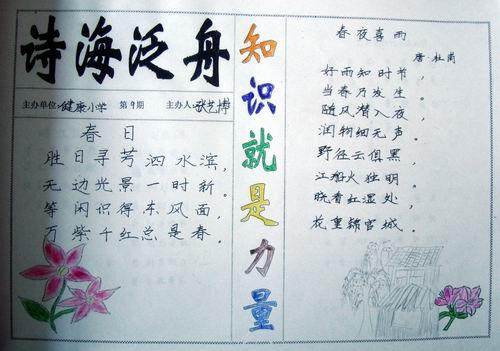 诗海泛舟
主办单位:健康小学 第9期 主办人:张艺博
春日
胜日寻芳泗水滨,
无边光景一时新。
等闲识得东风面,
万紫千红总是春。
知识就是力量
春夜喜雨
唐·杜甫
好雨知时节,
当春乃发生。
随风潜入夜,
润物细无声。
野径云俱黑,
江船火独明。
晓看红湿处,
花重锦官城。